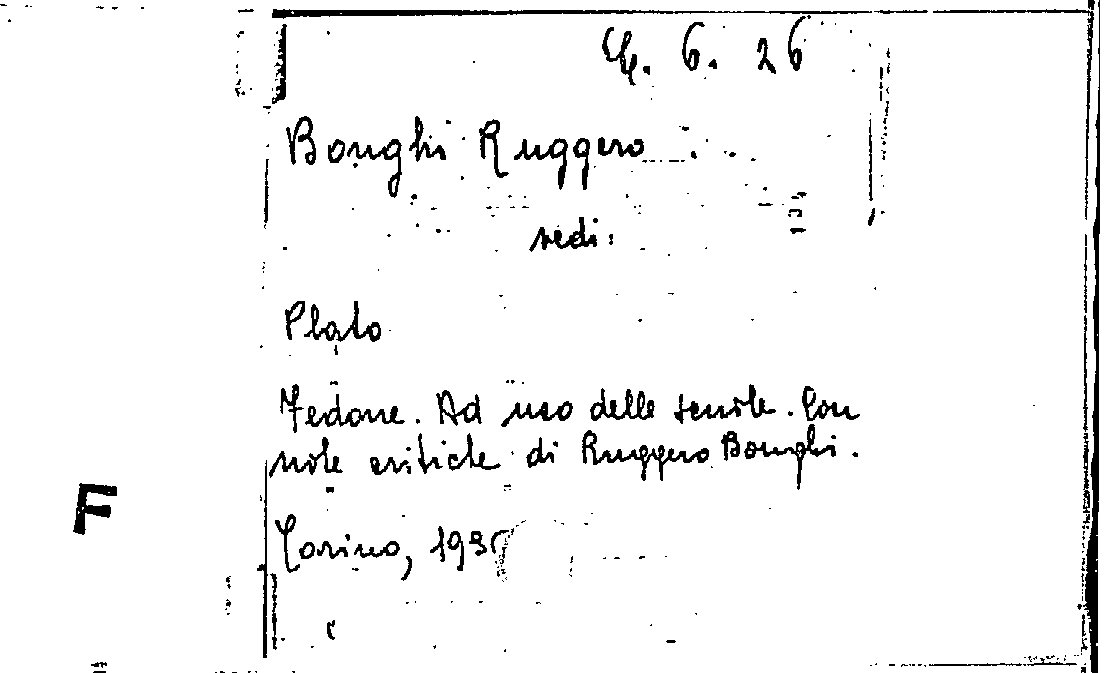 6. 26
Bonghi Ruggero
vedi:
Plato
Fedone. Ad uso delle scuole. Con
note critiche di Ruggero Bonghi.
F
Torino, 193